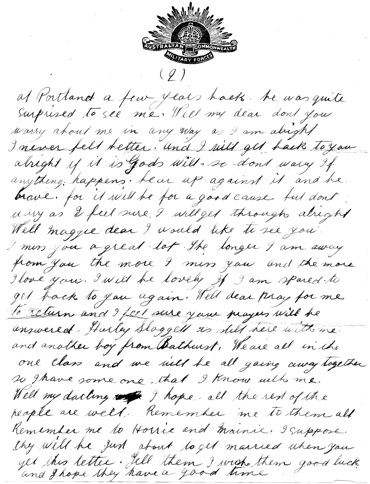 AUSTRALIAN COMMONWEALTH
MILITARY FORCES
(2)
at Portland a few years back. he was quite
surprised to see me. Well my dear dont you
worry about me in any way as I am alright
I never felt better. and I will get back to you
alright if it is Gods will. so dont wory If
anything happens. bear up against it and be
brave. for it will be for a good cause but dont
wory as I feel sure I will get through alright
Well Maggie dear I would like to see you
I miss you a great lot the longer I am away
from you the more I miss you and the more
I love you. I will be lovely if I am spared to
get back to you again. Well dear pray for me
to return and I feel sure your prayers will be
answered. Hurley Slaggett is still here with me
and another boy from Bathurst. We are all in the
one class and we will be all going away together
so I have some one that I know with me.
Well my darling I hope all the rest of the
people are well. Remember me to them all
Remember me to Horrie and Mainie. I suppose
they will be just about to get married when you
get this letter. Tell them I wish them good luck
and I hope they have a good time